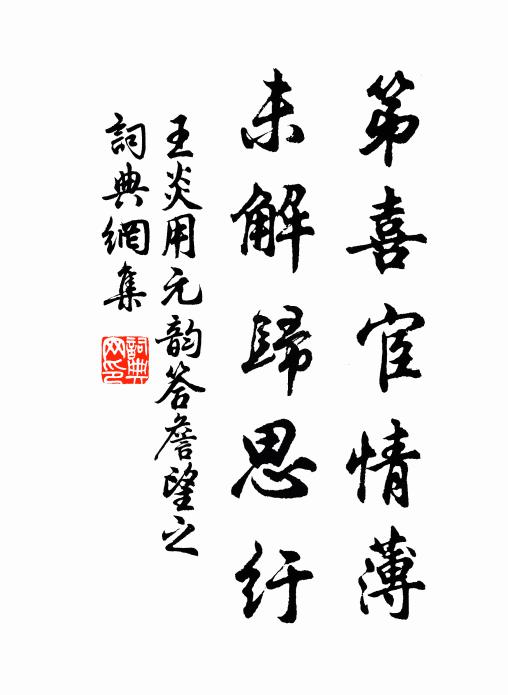 第喜宦情薄
未解歸思紆
王炎用元韵答詹望之
詞典網集
詞典網印